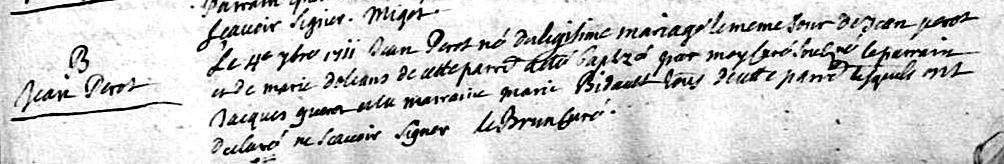 Scavoir Signer. Migot.
B
Jean Perot
Le 4e 7bre 1711 Jean Perot né du legitime mariage le meme Jour de Jean perot
et de marie dolians de cette parr. a été baptizé par moy Curé le parrain
Jacques et la marraine marie Bidault tous de cette parr. lesquels ont
declaré ne scavoir signer le Brun Curé.